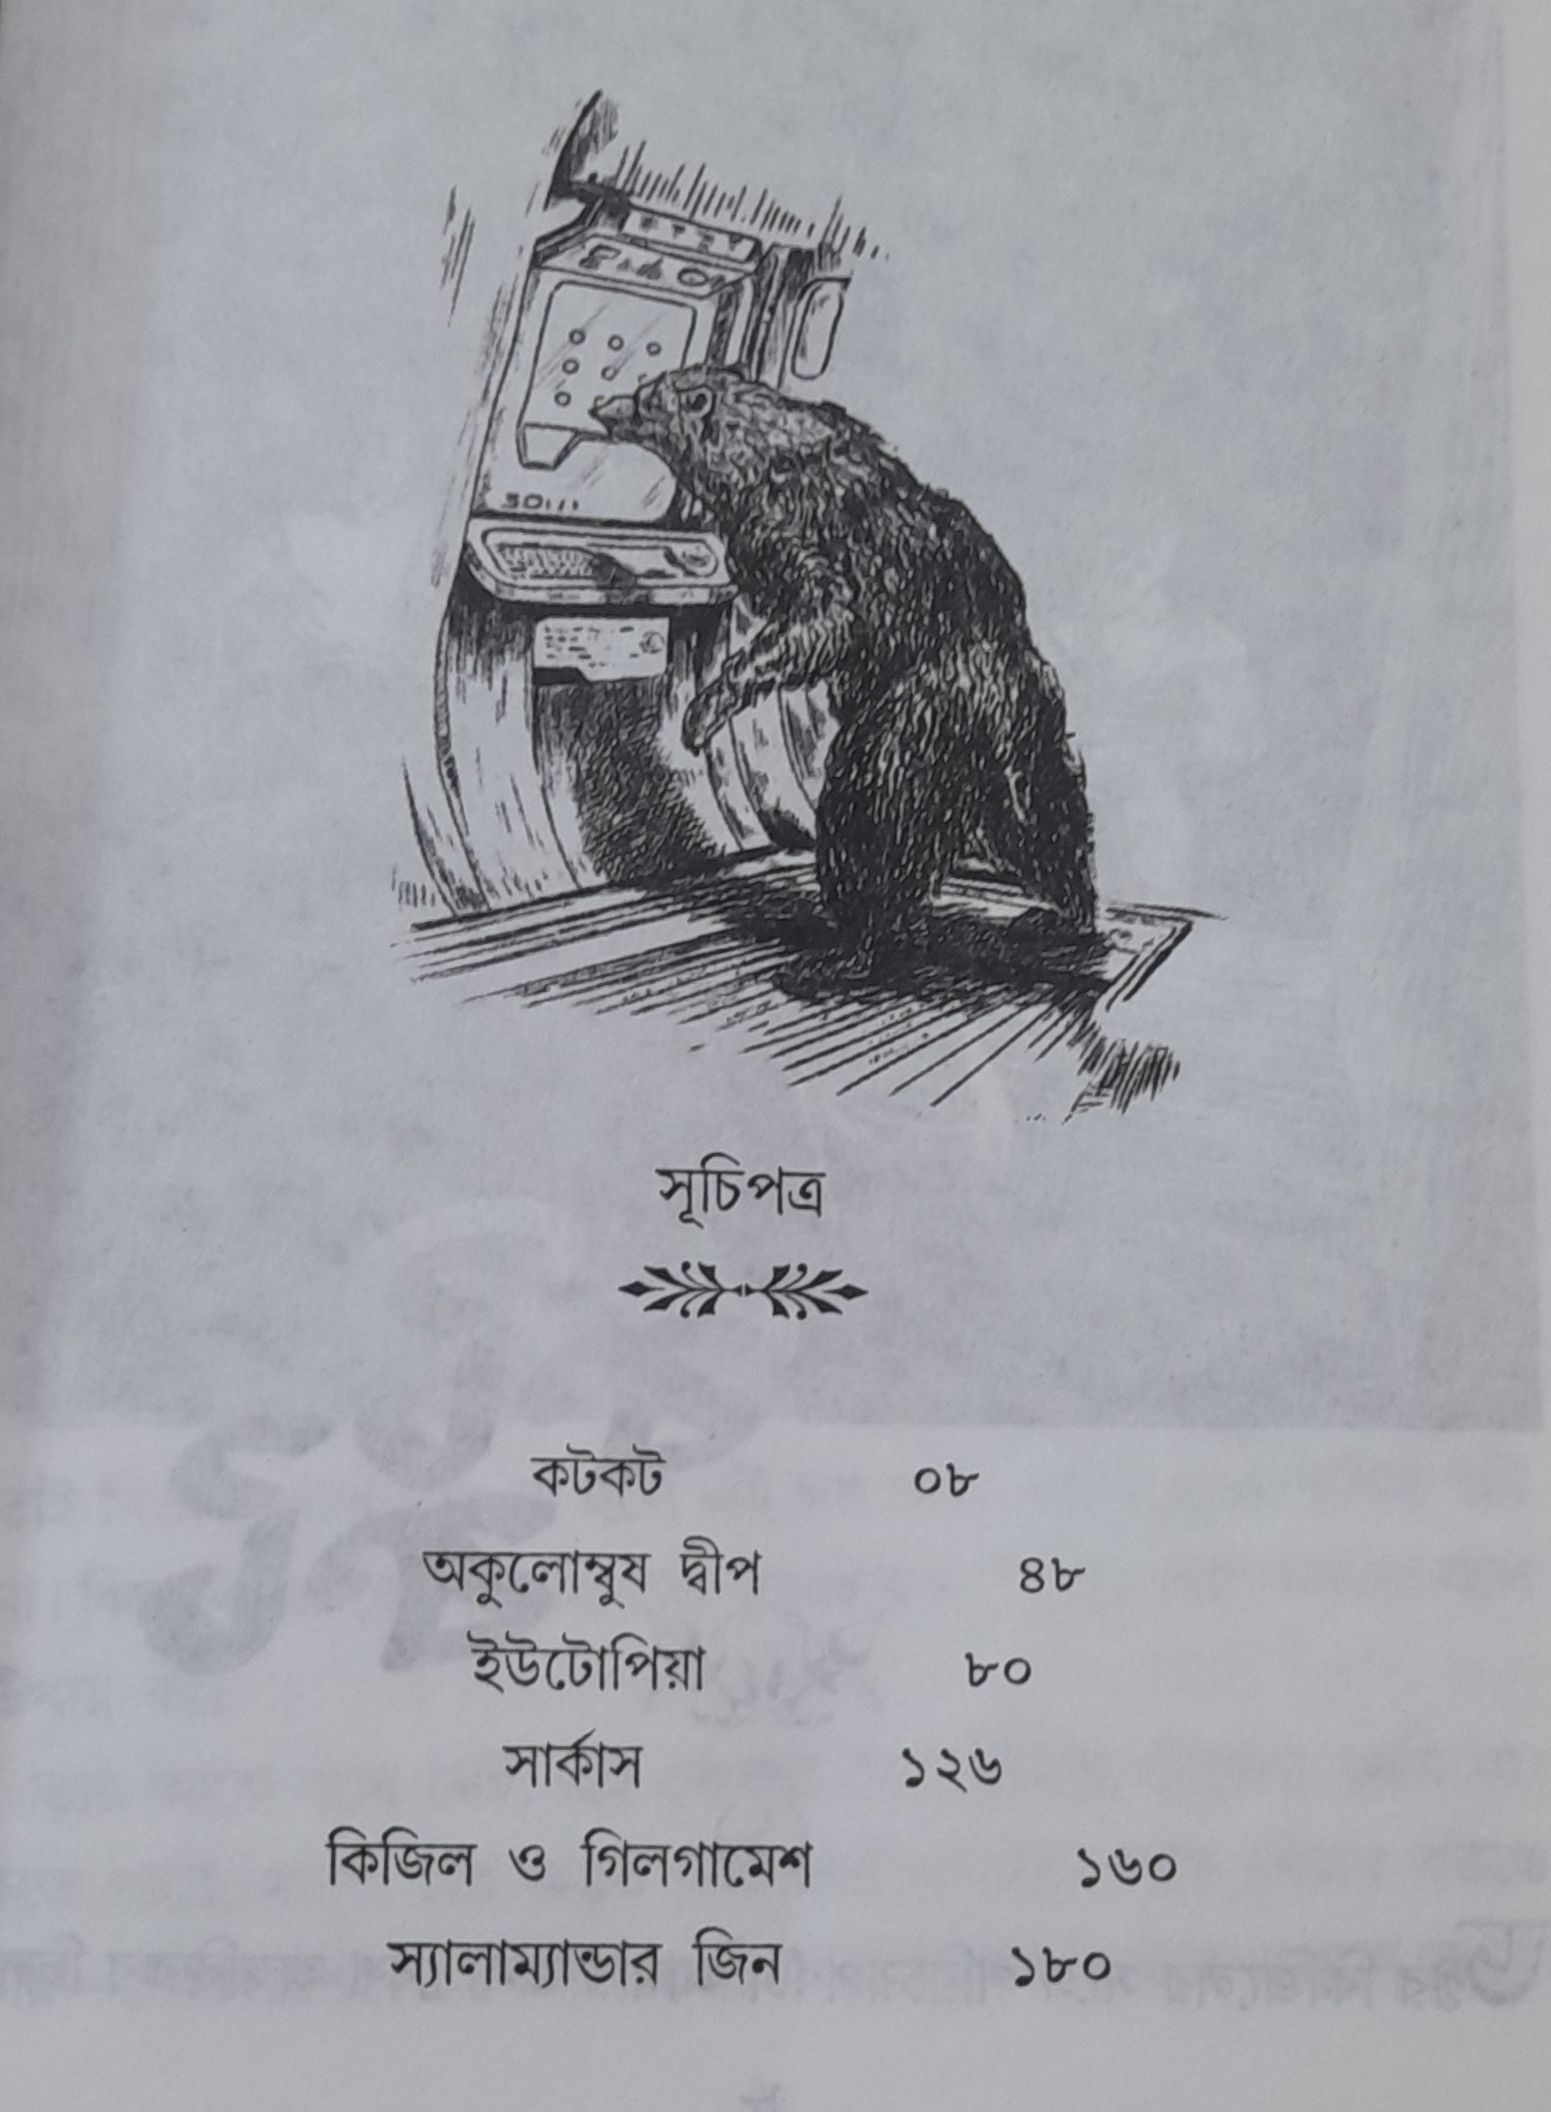 সূচিপত্র
কটকট ০৮
অকুলোম্বুষ দ্বীপ ৪৮
ইউটোপিয়া ৮০
সার্কাস ১২৬
কিজিল ও গিলগামেশ ১৬০
স্যালাম্যান্ডার জিন ১৮০